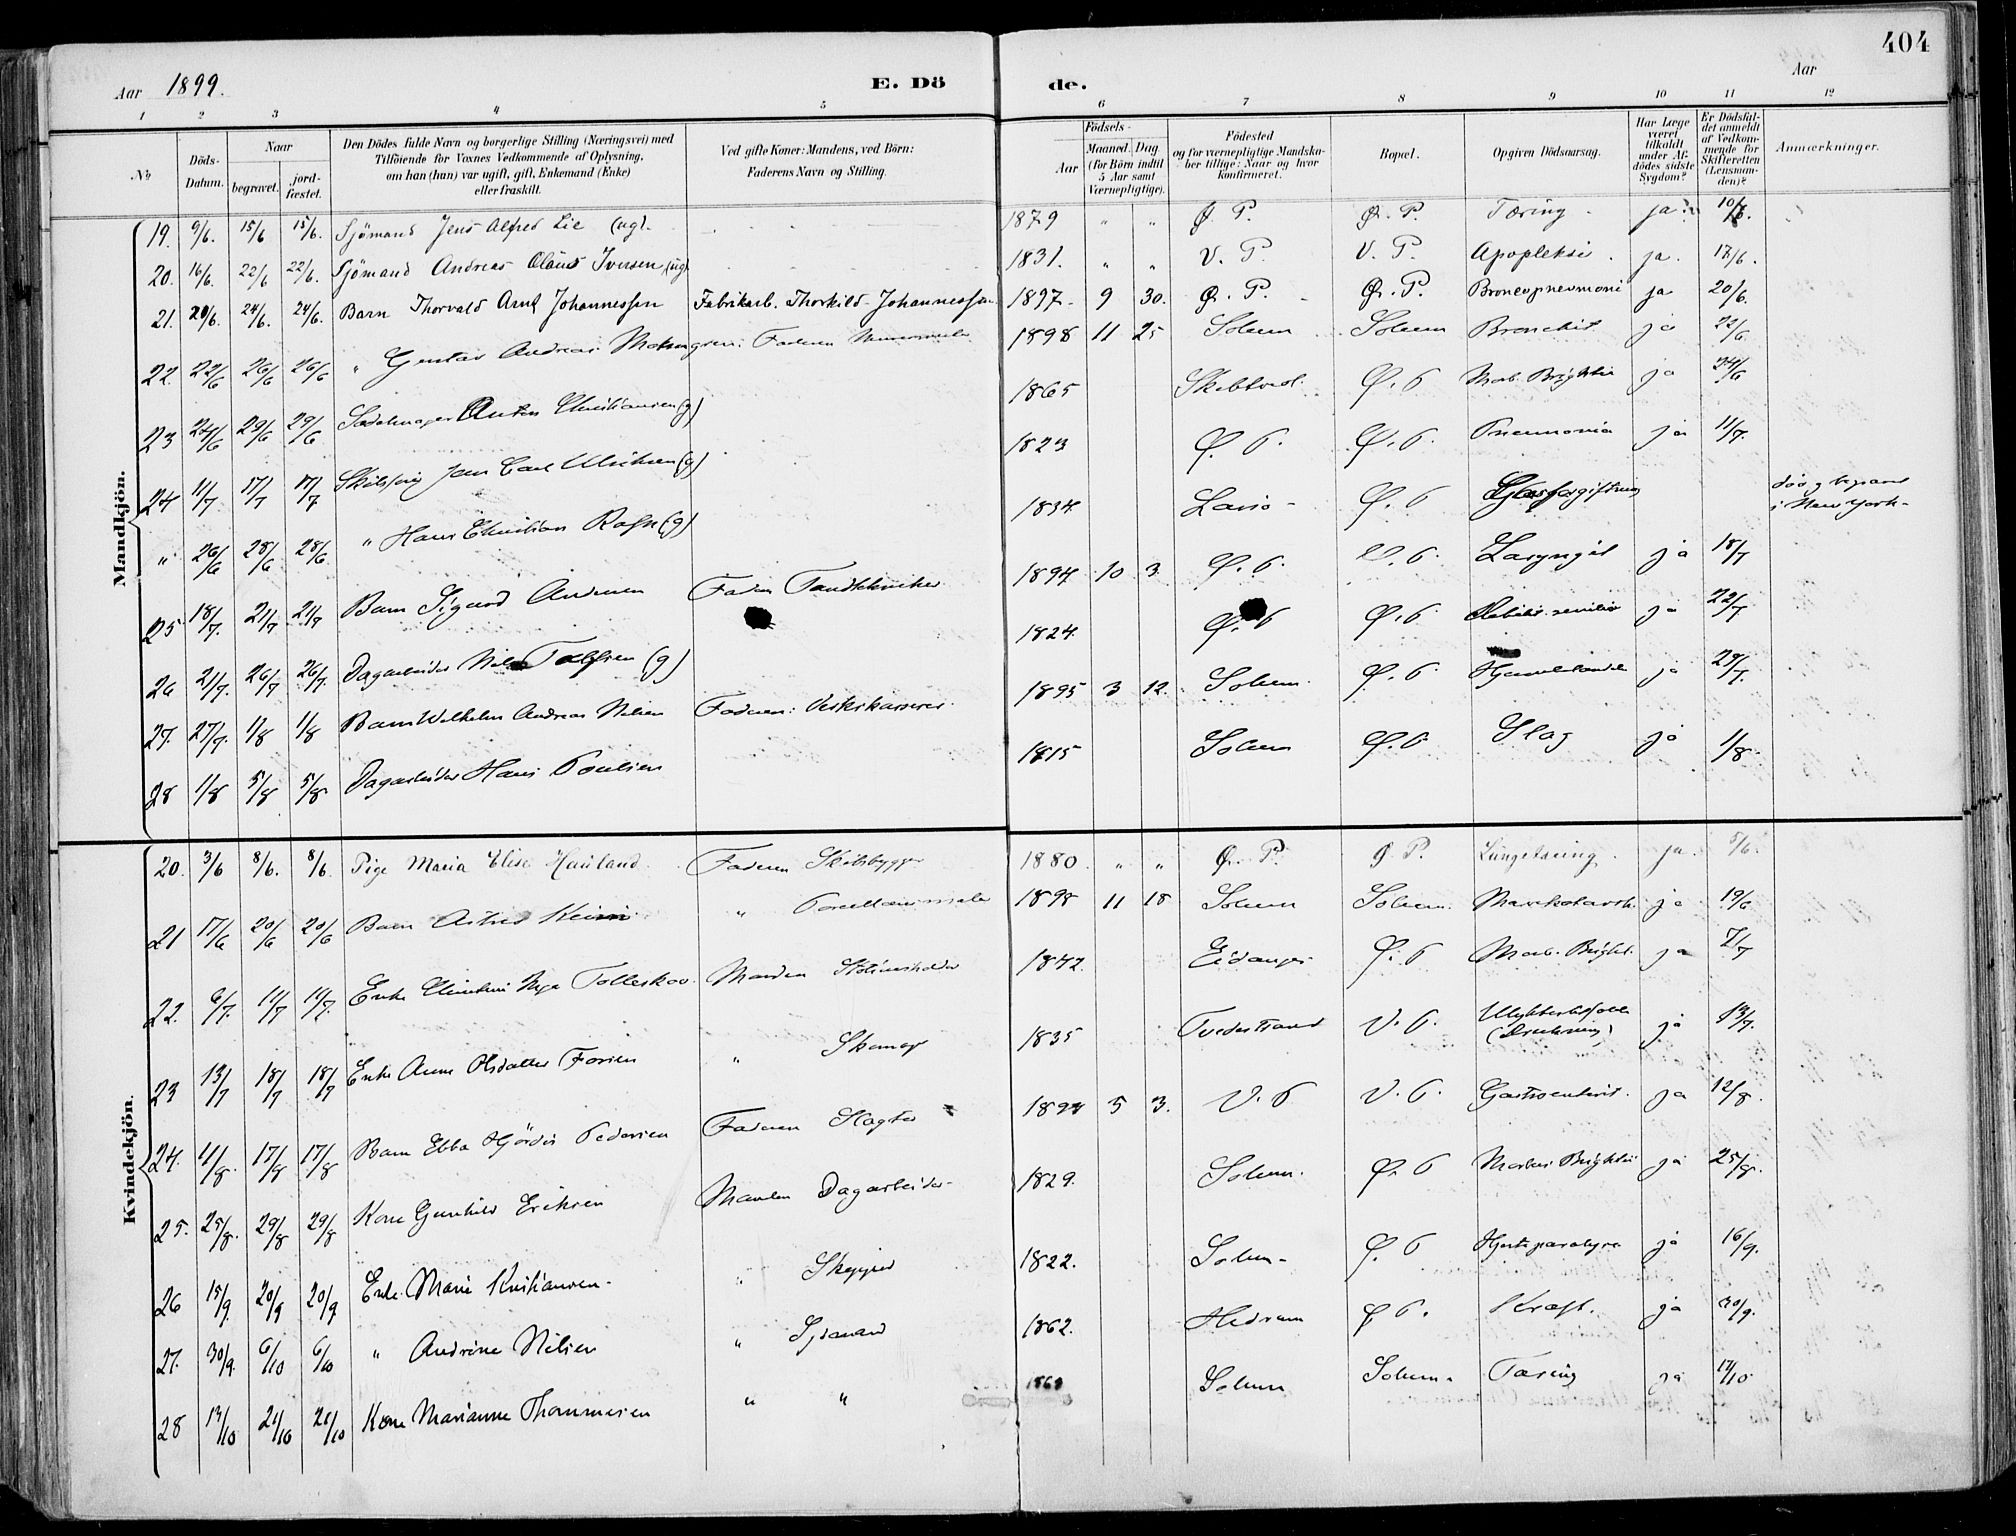 404
Aar 1899.
E. Dö
de.
Aar
1 2 3 4 5 6 7 8 9 10 11 12
No
Döds-Datum.
Naar
begravet.
jord-fæstet.
Den Dödes fulde Navn og borgerlige Stilling (Næringsvei) med
Tilföiende for Voxnes Vedkommende af Oplysning,
om han (hun) var ugift, gift, Enkemand (Enke)
eller fraskilt.
Ved gifte Koner: Mandens, ved Börn:
Faderens Navn og Stilling.
Födsels-
Aar
Maaned. Dag.
(for Börn indtil
5 Aar samt
Værnepligtige).
Födested
og for værnepligtige Mandska-
ber tillige: Naar og hvor
konfirmeret.
Bopæl.
Opgiven Dödsaarsag.
Har Læge
været
tilkaldt
under Af-
dödes sidste
Sygdom?
Er Dödsfal-
det anmeldt
af Vedkom-
mende for
Skifteretten
(Lensman-
den)?
Anmærkninger.
Mandkjön.
19. 9/6. 15/6 15/6. Sjömand Jens Alfred Lie (ug). 1879 " " Ø. P. Ø. P. Tæring ja 10/6.
20. 16/6. 22/6 22/6. Sjömand Andreas Olaus Iversen (ug). 1831. " " V. P. V. P. Apopleksi ja. 17/6.
21. 20/6. 24/6. 24/6. Barn Thorvald Arnt Johannessen Fabrikarb. Thorkild Johannessen 1897 9 30. Ø. P. Ø. P. Broncopnevmoni ja 20/6.
22. 22/6 26/6 26/6 " Gustav Andreas Faderen 1898 11 25 Solum Solum Bronchit ja 22/6
23 24/6 29/6 29/6 Sadelmager Anton Christiansen (g) 1865 Ø. P Morb. Brightii ja 24/6
24 11/7 17/7 17/7 Jens Carl (g) 1823 Ø. P. Ø. P. Pneumonia ja 11/7.
" 26/6 28/6 28/6 " Hans Christian Rafn (g) 1834 Ø. P død og begravet
i New York
25 18/7. 21/7 21/7 Barn Sigurd Andersen Faderen Tandtekniker 1894 10 3 Ø. P. Ø. P. Laryngit ja 18/7
26 21/7. 26/7 26/7. Dagarbeider (g) 1824. Ø. P Ø. P. Debilit. senilis ja 22/7
27. 27/7. 1/8 1/8 Barn Wilhelm Andreas Nilsen Faderen: 1895 3 12. Solum. Ø. P ja 29/7.
28 1/8 5/8 5/8 Dagarbeider Hans Poulsen 1815 Solum Ø. P Slag ja 1/8.
Kvindekjön.
20. 3/6 8/6. 8/6. Pige Maria Elise Hauland Faderen Skibsbygger 1880. " " Ø. P. Ø. P. Lungetæring. ja. 5/6.
21 17/6 20/6 20/6 Barn Astrid " Porcellænsmaler 1898 11 18 Solum Solum. ja 19/6
22. 6/7. 11/7 11/7. Enke Tolleskov. Manden 1842. Eidanger Ø. P Morb. Bright. ja 7/7
23 13/7 18/7 18/7 Enke Anne Olsdatter " Skomager 1835 Tvedestrand V. P. Ulykkestilfælde
(Drukning) ja 13/7.
24. 11/8. 17/8 17/8 Barn Ebba Hjördis Pedersen Faderen Slagter 5 3. V. P V. P. Gastroenterit. ja 12/8.
25. 25/8. 29/8 29/8 Kone Gunhild Eriksen Manden Dagarbeider 1829. Solum. Ø. P Morbus Brightii ja 25/8.
26 15/9. 20/9 20/9 Enke Marie Kristiansen. " Skipper 1822. Solum Ø. P Hjerteparalyse ja 16/9.
27. 30/9. 6/10 6/10 " Andrine Nilsen " Sjømand 1862. Hedrum Ø P. Kræft. ja 30/9.
28 13/10 21/10 21/10 Kone Marianne Thommesen " " Solum Solum. Tæring ja 17/10